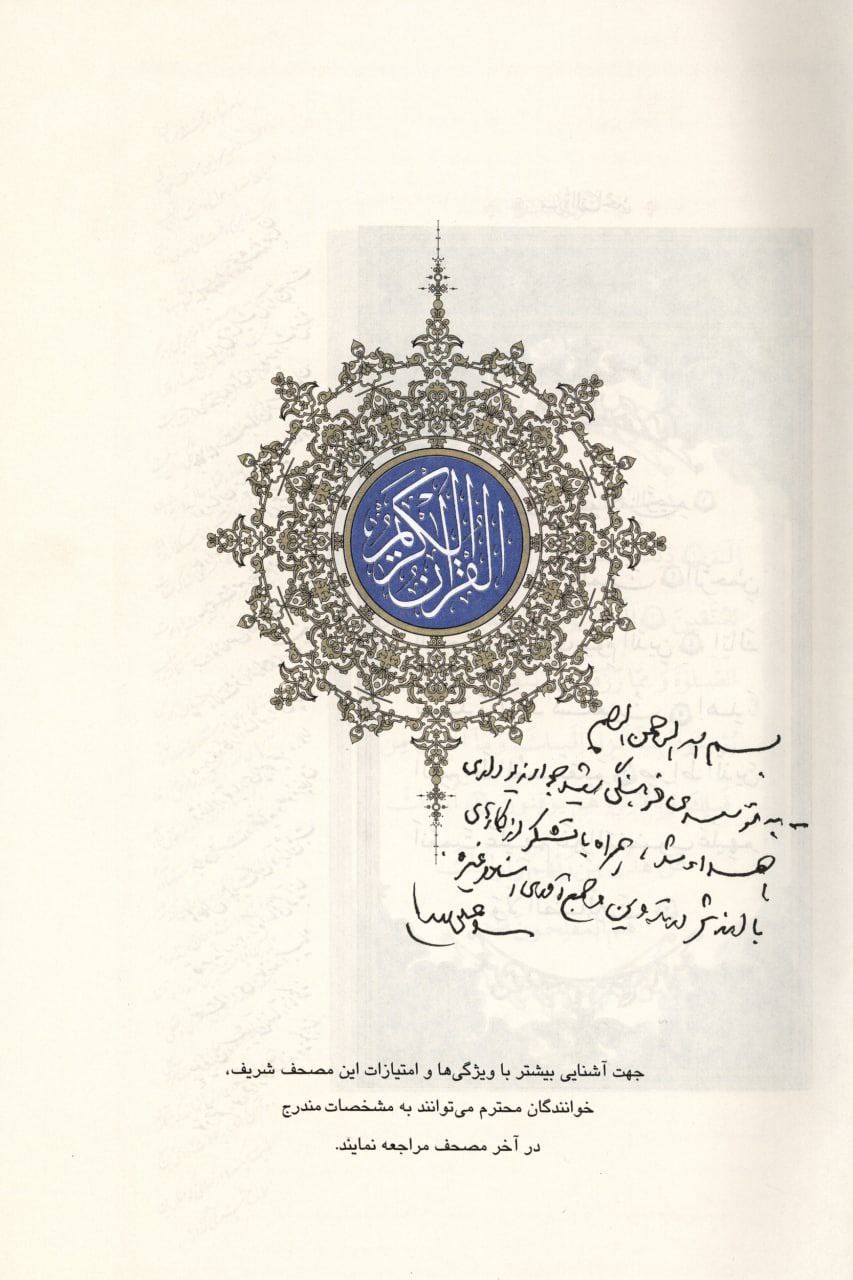 القرآن الکریم
بسم الله الرحمن الرحیم
به مؤسسه‌ی فرهنگی
اهداء شد، همراه با تشکر از کارهای
با ارزش در تدوین و جمع‌آوری اسناد و غیره
جهت آشنایی بیشتر با ویژگی‌ها و امتیازات این مصحف شریف،
خوانندگان محترم می‌توانند به مشخصات مندرج
در آخر مصحف مراجعه نمایند.